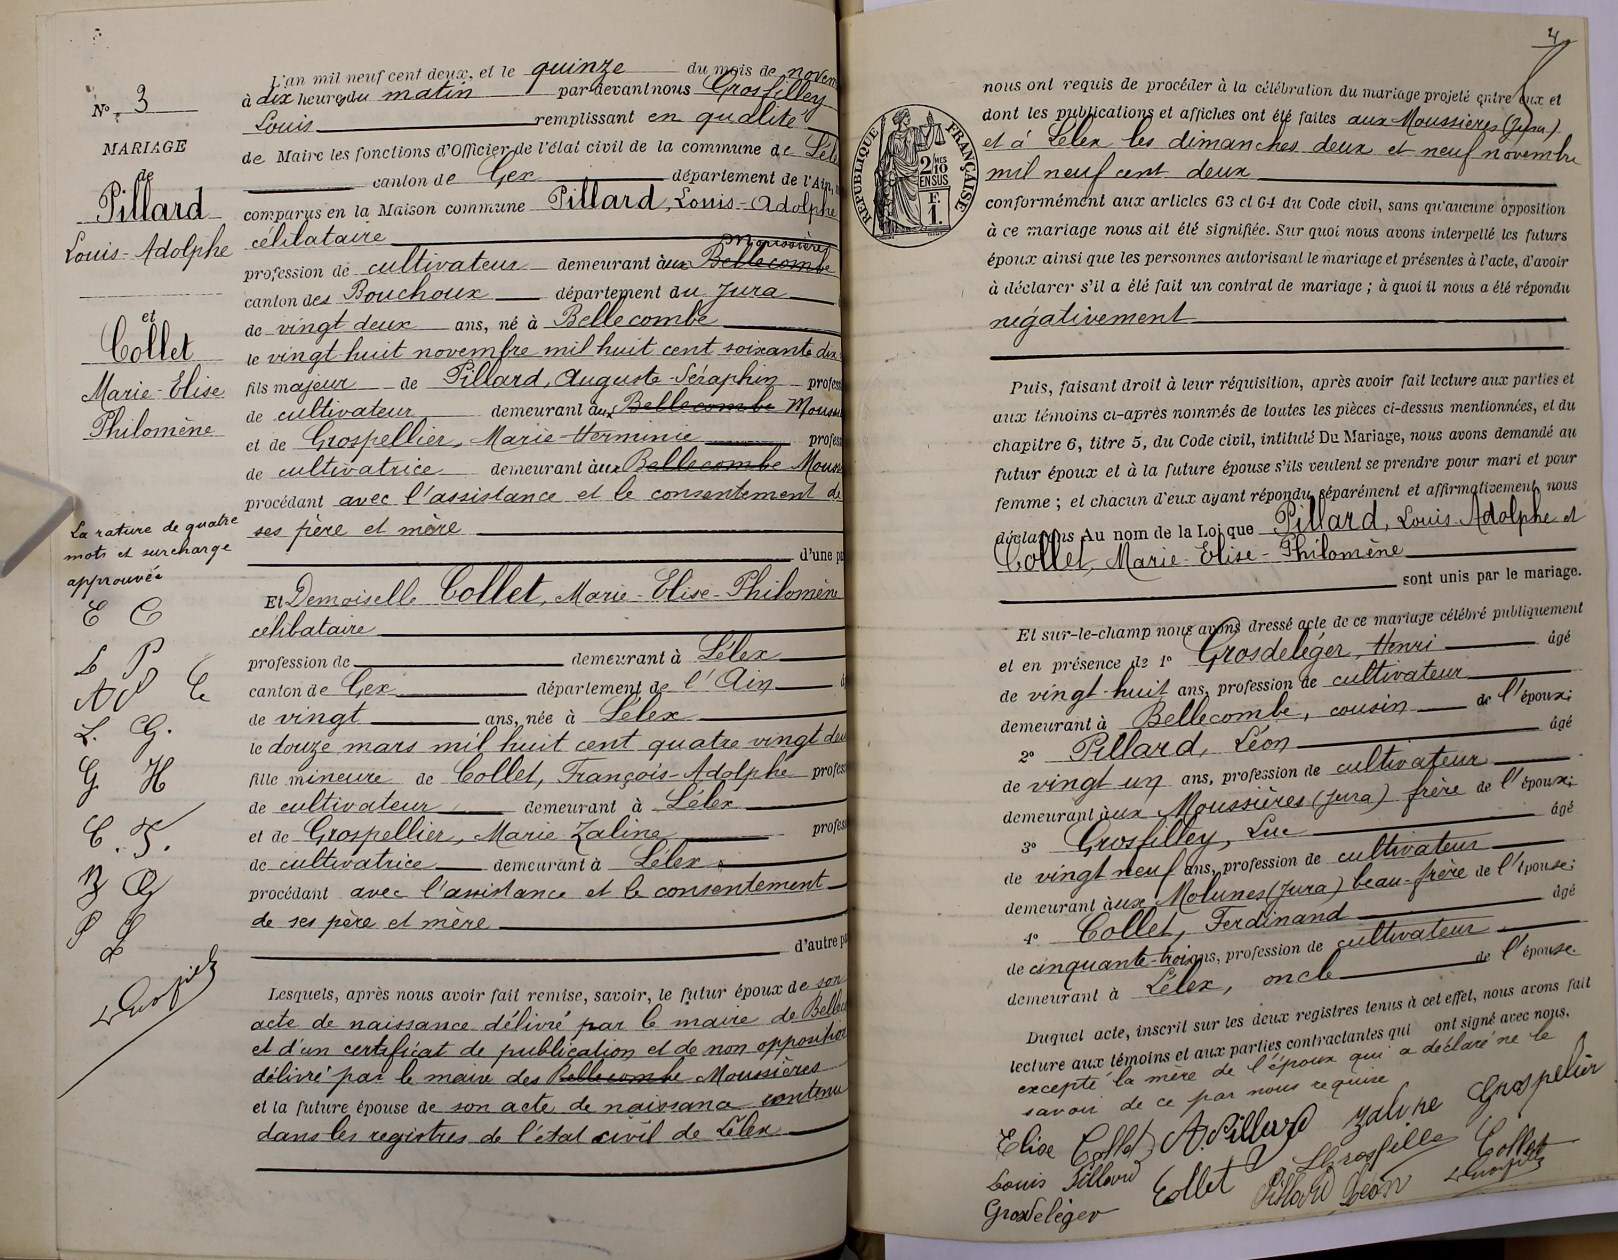 N° 3
MARIAGE
de
Pillard
Louis-Adolphe
et
Collet
Marie-Elise
Philomène
La rature de quatre
mots et surcharge
approuvée
E C
L P
L. G.
G H
C. F.
Z G
P L
L'an mil neuf cent deux, et le quinze du mois de novem
à dix heures du matin par devant nous Grosfilley
Louis remplissant en qualité
de Maire les fonctions d'Officier de l'état civil de la commune de Léle
canton de Gex département de l'Ain,
comparus en la Maison commune Pillard, Louis-Adolphe
célibataire
Moussières
profession de cultivateur demeurant aux Bellecombe
canton des Bouchoux département du Jura
de vingt deux ans, né à Bellecombe
le vingt huit novembre mil huit cent soixante dix
fils majeur de Pillard, Auguste-Séraphin profess
de cultivateur demeurant aux Bellecombe Mouss
et de Grospellier, Marie-Herminie profess
de cultivatrice demeurant aux Bellecombe Mouss
procédant avec l'assistance et le consentement de
ses père et mère
d'une pa
Et Demoiselle Collet, Marie-Elise-Philomène
célibataire
profession de demeurant à Lélex
canton de Gex département de l'Ain
de vingt ans, née à Lélex
le douze mars mil huit cent quatre vingt deu
fille mineure de Collet, François-Adolphe profess
de cultivateur demeurant à Lélex
et de Grospellier, Marie Zaline profess
de cultivatrice demeurant à Lélex
procédant avec l'assistance et le consentement
de ses père et mère
d'autre pa
Lesquels, après nous avoir fait remise, savoir, le futur époux de son
acte de naissance délivré par le maire de Belleco
et d'un certificat de publication et de non opposition
délivré par le maire des Bellecombe Moussières
et la future épouse de son acte de naissance contenu
dans les registres de l'état civil de Lélex
4
RÉPUBLIQUE FRANÇAISE
2 MES
2/10
EN SUS
F.
1.
nous ont requis de procéder à la célébration du mariage projeté entre eux et
dont les publications et affiches ont été faites aux Moussières (Jura)
et à Lélex les dimanches deux et neuf novembre
mil neuf cent deux
conformément aux articles 63 et 64 du Code civil, sans qu'aucune opposition
à ce mariage nous ait été signifiée. Sur quoi nous avons interpellé les futurs
époux ainsi que les personnes autorisant le mariage et présentes à l'acte, d'avoir
à déclarer s'il a été fait un contrat de mariage ; à quoi il nous a été répondu
négativement
Puis, faisant droit à leur réquisition, après avoir fait lecture aux parties et
aux témoins ci-après nommés de toutes les pièces ci-dessus mentionnées, et du
chapitre 6, titre 5, du Code civil, intitulé Du Mariage, nous avons demandé au
futur époux et à la future épouse s'ils veulent se prendre pour mari et pour
femme ; et chacun d'eux ayant répondu séparément et affirmativement, nous
déclarons Au nom de la Loi que Pillard, Louis-Adolphe et
Collet, Marie-Elise-Philomène
sont unis par le mariage.
Et sur-le-champ nous avons dressé acte de ce mariage célébré publiquement
et en présence de 1° Grosdeléger, Henri âgé
de vingt-huit ans, profession de cultivateur
demeurant à Bellecombe, cousin de l'époux;
2° Pillard, Léon âgé
de vingt un ans, profession de cultivateur
demeurant aux Moussières (Jura) frère de l'époux;
3° Grosfilley, Luc âgé
de vingt neuf ans, profession de cultivateur
demeurant aux Molunes (Jura) beau-frère de l'épouse;
4° Collet, Ferdinand âgé
de cinquante-trois ans, profession de cultivateur
demeurant à Lélex, oncle de l'épouse
Duquel acte, inscrit sur les deux registres tenus à cet effet, nous avons fait
lecture aux témoins et aux parties contractantes qui ont signé avec nous.
excepté la mère de l'époux qui a déclaré ne le
savoir de ce par nous requise
Elise Collet A. Pillard Zaline Grospelier
Louis Pillard Collet LGrosfilley Collet
Grosdeléger Pillard Léon